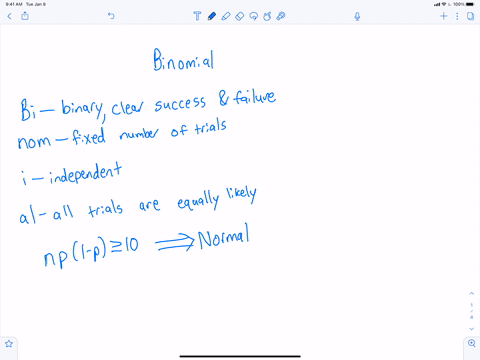 9:41 AM Tue Jan 9
100%
Binomial
Bi — binary, clear success & failure
nom — fixed number of trials
i — independent
al — all trials are equally likely
np(1-p) ≥ 10 ⟹ Normal